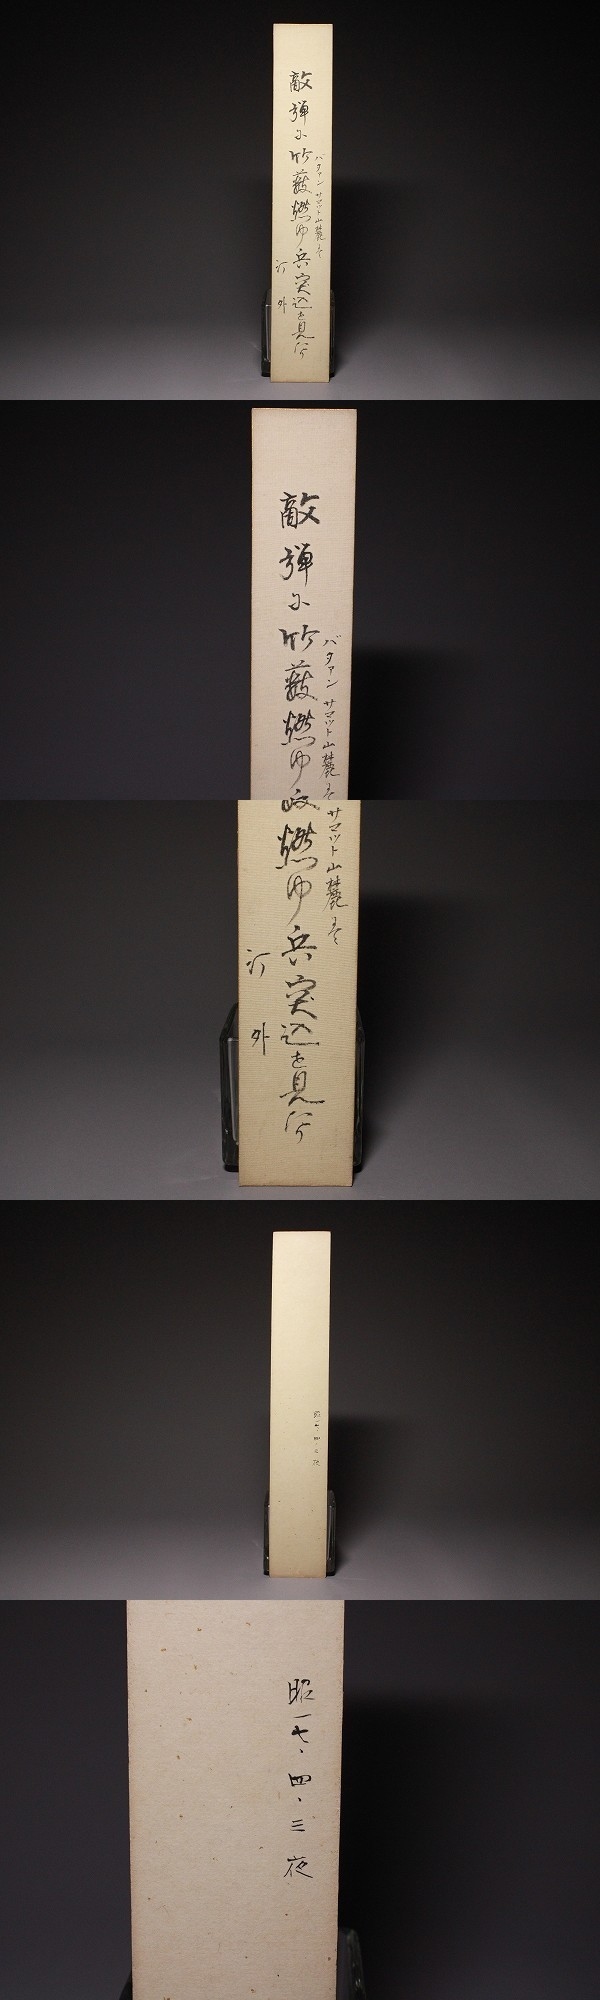 バタアン サマット山麓にて
敵弾に竹藪燃ゆ兵突込を見つゝ
外
バタアン サマット山麓
敵弾に竹藪燃ゆ
サマット山麓にて
燃ゆ兵突込を見つゝ
外
昭一七、四、三夜
昭一七、四、三夜